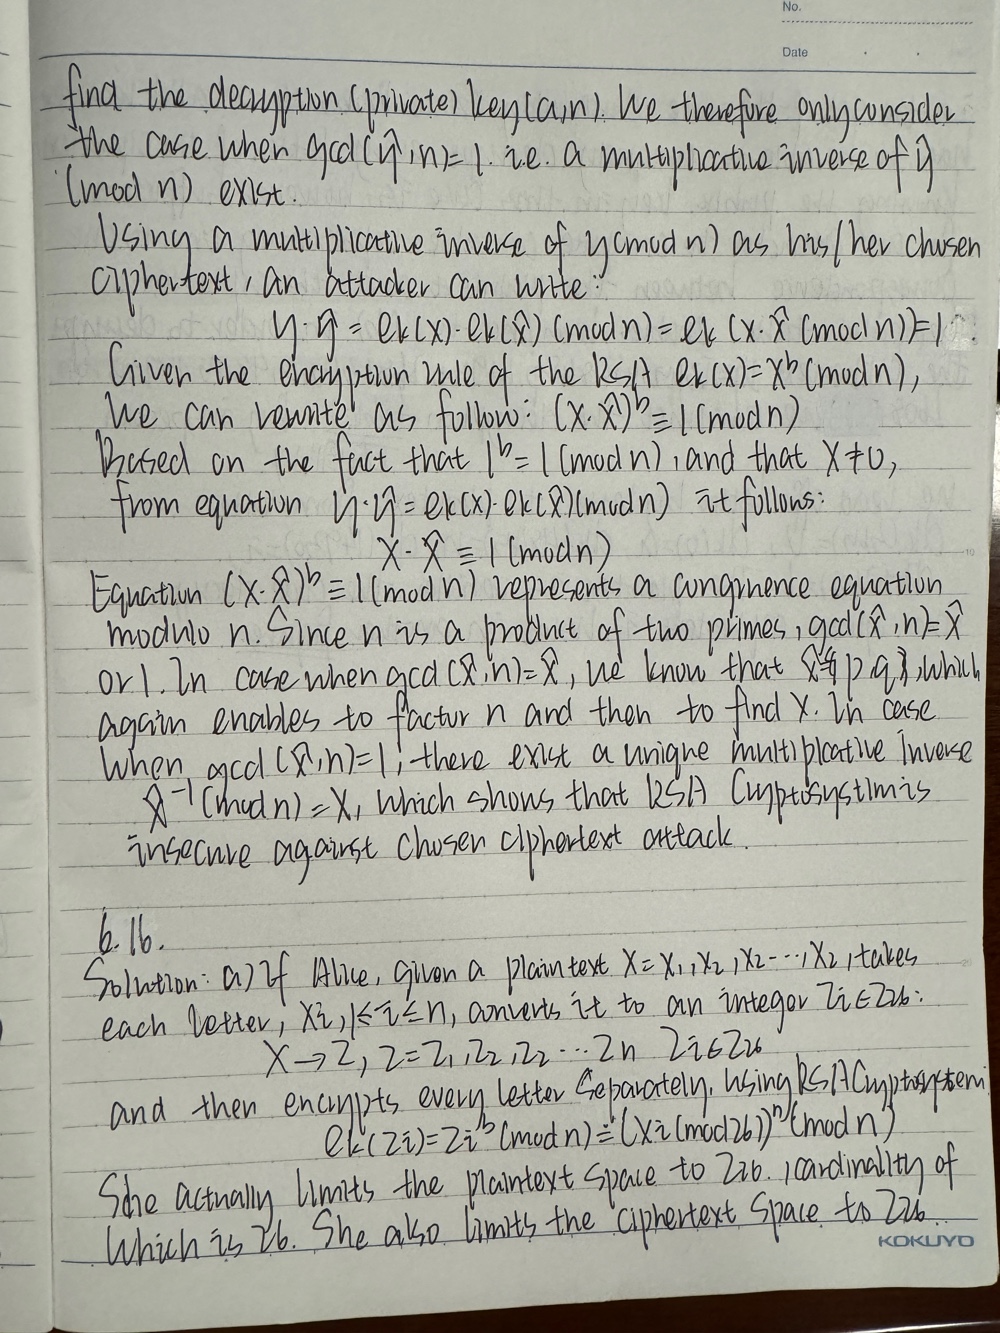 No.
Date
find the decryption (private) key (a,n). We therefore only consider
the case when gcd(ŷ,n)=1. i.e. a multiplicative inverse of ŷ
(mod n) exist.
Using a multiplicative inverse of y(mod n) as his/her chosen
ciphertext, an attacker can write:
y·ŷ = ek(x)·ek(x̂) (mod n) = ek (x·x̂ (mod n)) = 1
Given the encryption rule of the RSA ek(x)=x^b (mod n),
we can rewrite as follow: (x·x̂)^b ≡ 1 (mod n)
Based on the fact that 1^b = 1 (mod n), and that x≠0,
from equation y·ŷ = ek(x)·ek(x̂)(mod n) it follows:
x·x̂ ≡ 1 (mod n)
10
Equation (x·x̂)^b ≡ 1 (mod n) represents a congruence equation
modulo n. Since n is a product of two primes, gcd(x̂,n)=x̂
or 1. In case when gcd(x̂,n)=x̂, we know that p q}, which
again enables to factor n and then to find x. In case
when gcd(x̂,n)=1, there exist a unique multiplicative inverse
x̂^-1 (mod n) = x, which shows that RSA Cryptosystem is
insecure against chosen ciphertext attack.
6.16.
Solution: a) If Alice, given a plaintext x = x₁, x₂, x₂ ···, x₂, takes
each letter, xi, 1≤i≤n, converts it to an integer Zi∈Z26:
X → Z, Z = Z₁, Z₂, Z₂ ··· Zn Zi∈Z26
and then encrypts every letter separately, using RSA Cryptosystem
ek(Zi) = Zi^b (mod n) ≡ (xi (mod 26))^n (mod n)
She actually limits the plaintext space to Z26, cardinality of
which is 26. She also limits the ciphertext space to Z26.
KOKUYO